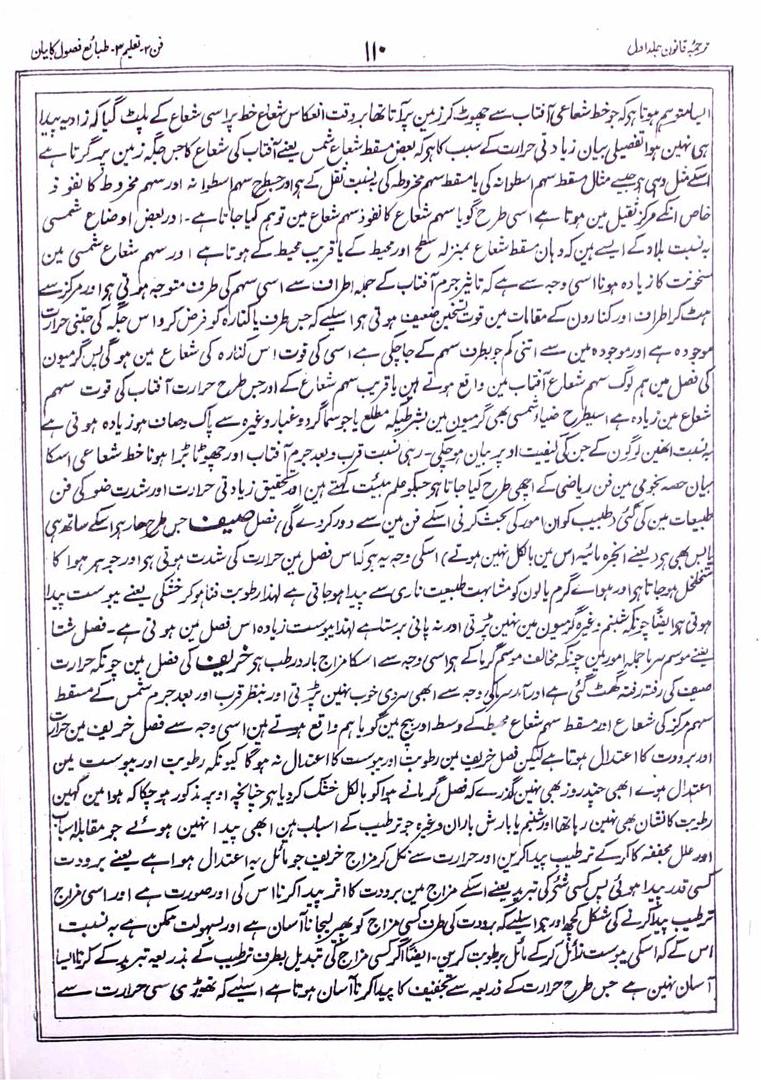 ترجمۂ قانون جلد اول
۱۱۰
فن ۲۔ تعلیم ۳۔ طبائع فصول کا بیان
ایسا متوسم ہوتا ہو کہ جو خط شعاعی آفتاب سے چھوٹ کر زمین پر آتا تھا بر وقت انعکاس شعاع خط پر اسی شعاع کے پلٹ گیا کہ زاویہ پیدا
ہی نہین ہوا تفصیلی بیان زیادتی حرارت کے سبب کا ہو کہ بعض مسقط شعاع شمس یعنے آفتاب کی شعاع کا جس جگہ زمین پر گرتا ہے
اسکے مثل وہی ہو جیسے مثال مسقط سہم اسطوانہ کی یا مسقط سہم مخروطہ کی بہ نسبت نقل کے ہو اور جسطرح سہم اسطوانہ اور سہم مخروط کا نفوذ
خاص انکے مرکز ثقیل مین ہوتا ہے اسی طرح گویا سہم شعاع کا نفوذ سہم شعاع مین توہم کیا جاتا ہے۔ اور بعض اوضاع شمسی
بہ نسبت بلاد کے ایسے ہین کہ وہان مسقط شعاع بمنزلہ سطح اور محیط کے یا قریب محیط کے ہوتا ہے اور سہم شعاع شمسی مین
سخونت کا زیادہ ہونا اسی وجہ سے ہے کہ تاثیر جرم آفتاب کے جملہ اطراف سے اسی سہم کی طرف متوجہ ہوتی ہو اور مرکز سے
ہٹ کر اطراف اور کنارون کے مقامات مین قوت تسخین ضعیف ہوتی ہو اسلیے کہ جس طرف یا کنارہ کو فرض کرو اس جگہ کی جتنی حرارت
موجودہ ہے اور موجودہ مین سے اتنی کم جو بطرف سہم کے جا چکی ہے اسی کی قوت اس کنارہ کی شعاع مین ہو گی پس گرمیون
کی فصل مین ہم لوگ سہم شعاع آفتاب مین واقع ہوتے ہین یا قریب سہم شعاع کے اور جس طرح حرارت آفتاب کی قوت سہم
شعاع مین زیادہ ہے اسیطرح ضیاء شمسی بھی گرمیون مین بشرطیکہ مطلع یا جو سما گرد و غبار وغیرہ سے پاک و صاف ہو زیادہ ہوتی ہے
بہ نسبت انھین لوگون کے جن کی کیفیت اوپر بیان ہو چکی۔ رہی نسبت قرب و بعد جرم آفتاب اور چھوٹا بڑا ہونا خط شعاعی اسکا
بیان حصہ نجومی مین فن ریاضی کے اچھی طرح کیا جاتا ہو جسکو علم ہیئت کہتے ہین اور تحقیق زیادتی حرارت اور شدت ضوء کی فن
طبیعات مین کی گئی (طبیب کو ان امور کی بحث کرنی اسکے فن مین سے دور کر دے گی) فصل صیف جس طرح حار ہو اسکے ساتھ ہی
یابس بھی ہو (یعنے ابخرہ مائیہ اس مین بالکل نہین ہوتے) اسکی وجہ یہ ہو کہ اس فصل مین حرارت کی شدت ہوتی ہو اور جوہر ہوا کا
متخلخل ہو جاتا ہو اور ہواے گرم یابس کو مشابہت طبیعت ناری سے پیدا ہو جاتی ہے لہذا رطوبت فنا ہو کر خشکی یعنے یبوست پیدا
ہوتی ہو ایضاً چونکہ شبنم وغیرہ گرمیون مین نہین پڑتی اور نہ پانی برستا ہے لہذا یبوست زیادہ اس فصل مین ہوتی ہے۔ فصل شتا
یعنے موسم سرما جملہ امور مین چونکہ مخالف موسم گرما کے ہو اسی وجہ سے اسکا مزاج بارد رطب ہو خریف کی فصل مین چونکہ حرارت
صیف کی رفتہ رفتہ گھٹ گئی ہے اور آمد سرما کی وجہ سے ابھی سردی خوب نہین پڑتی اور بنظر قرب اور بعد جرم شمس کے مسقط
سہم مرکز کی شعاع اور مسقط سہم شعاع محیط کے وسط اور بیچ مین گویا ہم واقع ہوتے ہین اسی وجہ سے فصل خریف مین حرارت
اور برودت کا اعتدال ہوتا ہے لیکن فصل خریف مین رطوبت اور یبوست کا اعتدال نہ ہو گا کیونکہ رطوبت اور یبوست مین
اعتدال ہوے ابھی چند روز بھی نہین گذرے کہ فصل گرما نے ہوا کو بالکل خشک کر دیا ہو چنانچہ اوپر مذکور ہو چکا کہ ہوا مین کہین
رطوبت کا نشان بھی نہین رہا تھا اور شبنم یا بارش باران وغیرہ جو ترطیب کے اسباب ہین ابھی پیدا نہین ہوئے جو مقابلہ اسباب
اور علل مجففہ کا کر کے ترطیب پیدا کرین اور حرارت سے نکل کر مزاج خریف جو مائل بہ اعتدال ہوا ہے یعنے برودت
کسی قدر پیدا ہوئی پس کسی شئی کی تبرید یعنے اسکے مزاج مین برودت کا اثر پیدا کرنا اس کی اور صورت ہے اور اسی مزاج
ترطیب پیدا کرنے کی شکل کچھ اور ہو اسلیے کہ برودت کی طرف کسی مزاج کو پھیر لیجانا آسان ہے اور بسہولت ممکن ہے بہ نسبت
اس کے کہ اسکی یبوست زائل کر کے مائل برطوبت کرین۔ ایضاً اگر کسی مزاج کی تبدیل بطرف ترطیب کے بذریعہ تبرید کے کرنا ایسا
آسان نہین ہے جس طرح حرارت کے ذریعہ سے تجفیف کا پیدا کرنا آسان ہوتا ہے اسلیے کہ تھوڑی سی حرارت سے